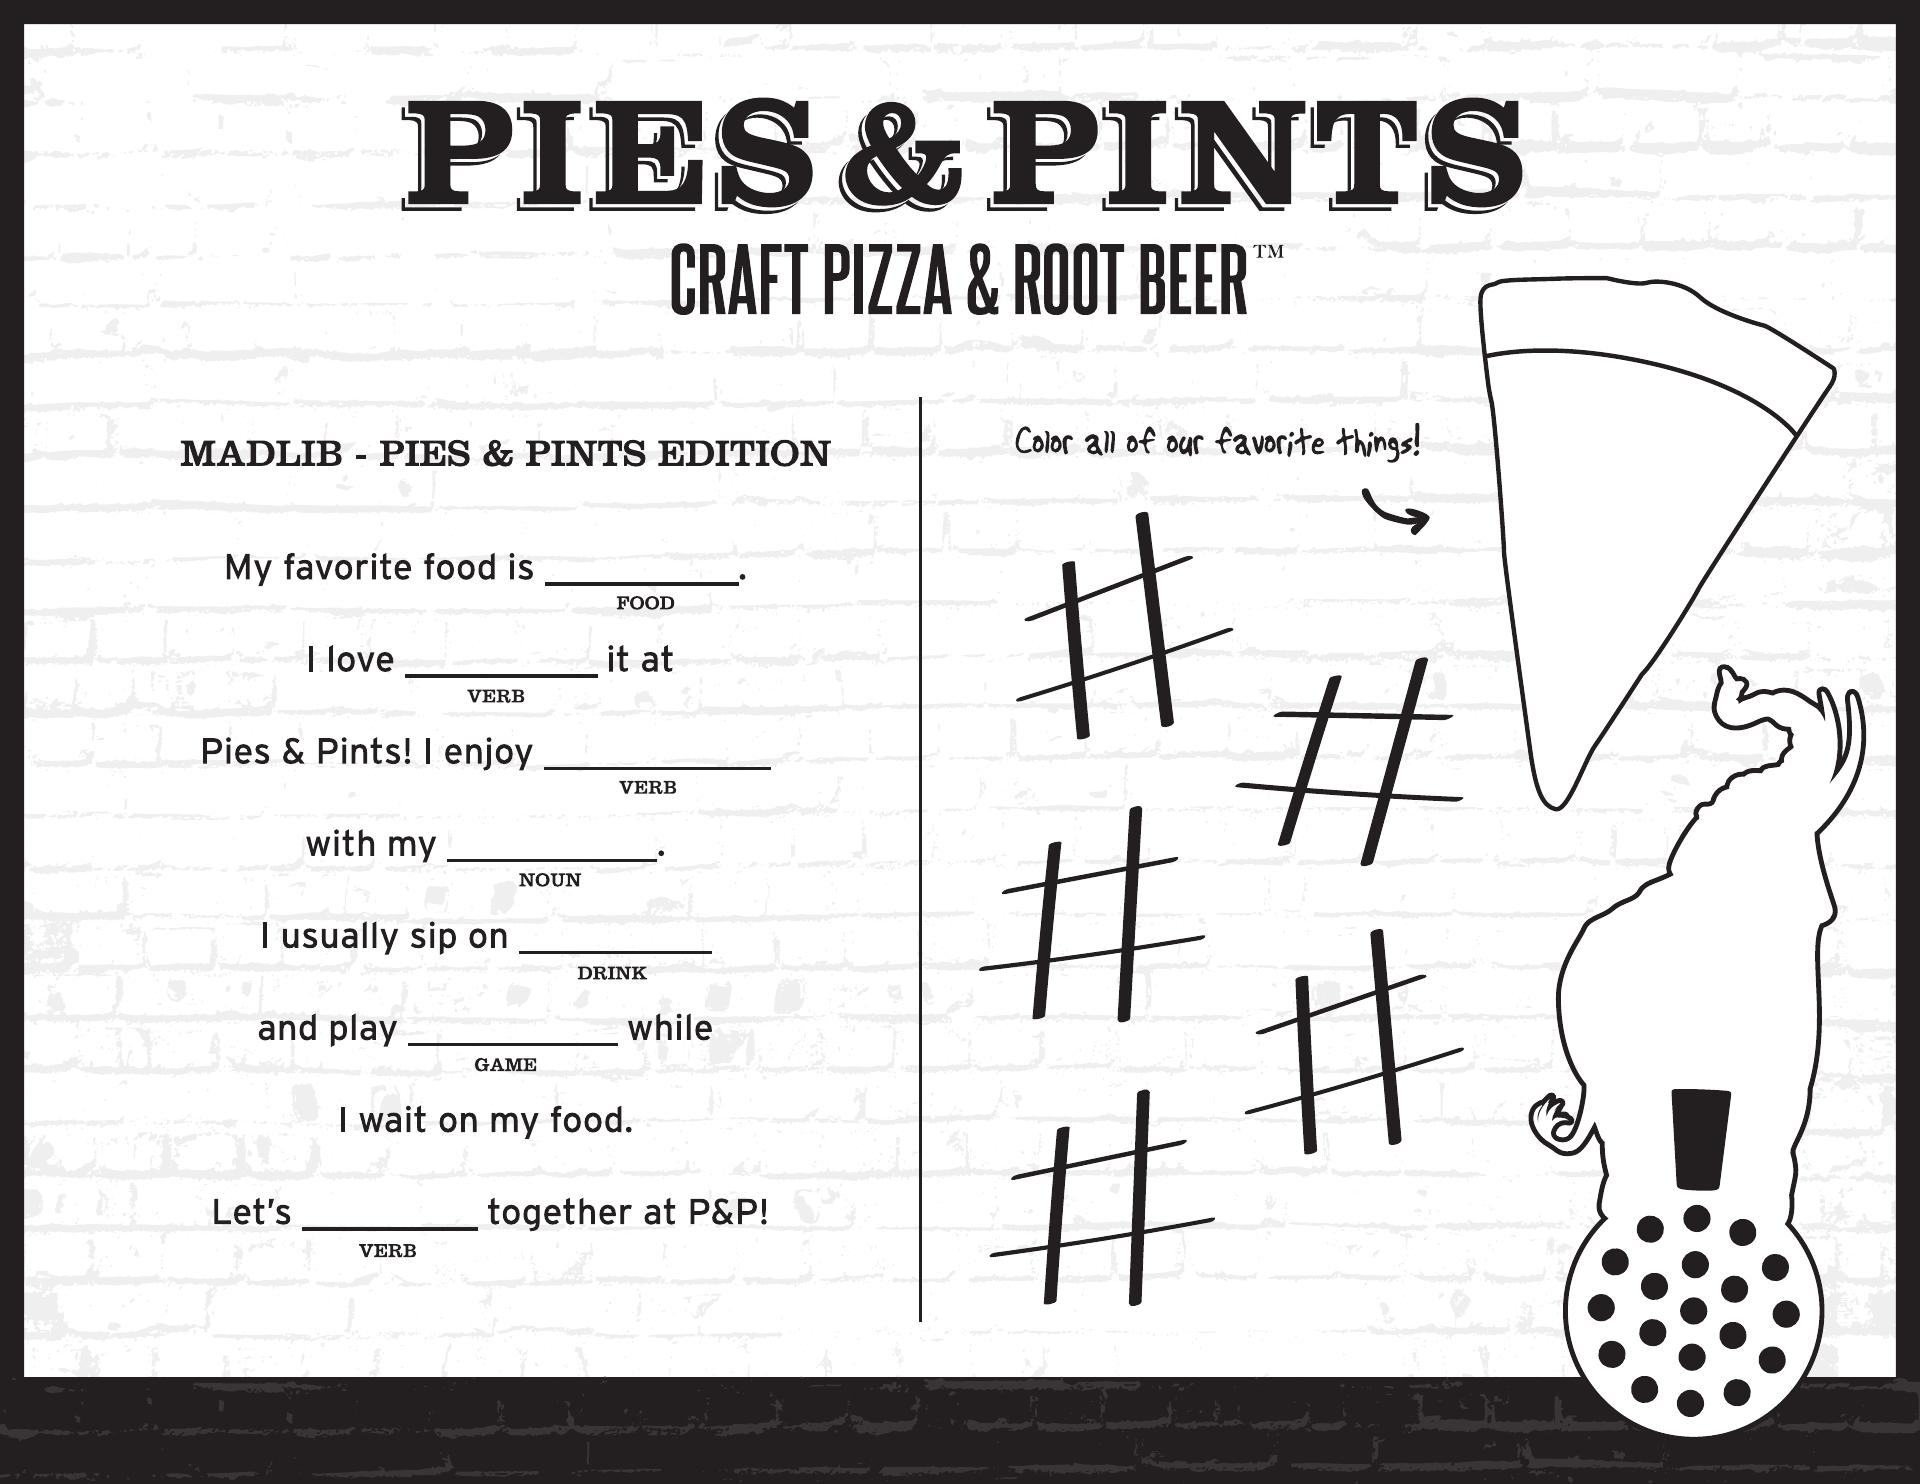 PIES & PINTS
CRAFT PIZZA & ROOT BEER™
MADLIB - PIES & PINTS EDITION
My favorite food is __________.
FOOD
I love __________ it at
VERB
Pies & Pints! I enjoy __________
VERB
with my __________.
NOUN
I usually sip on __________
DRINK
and play __________ while
GAME
I wait on my food.
Let's __________ together at P&P!
VERB
Color all of our favorite things!